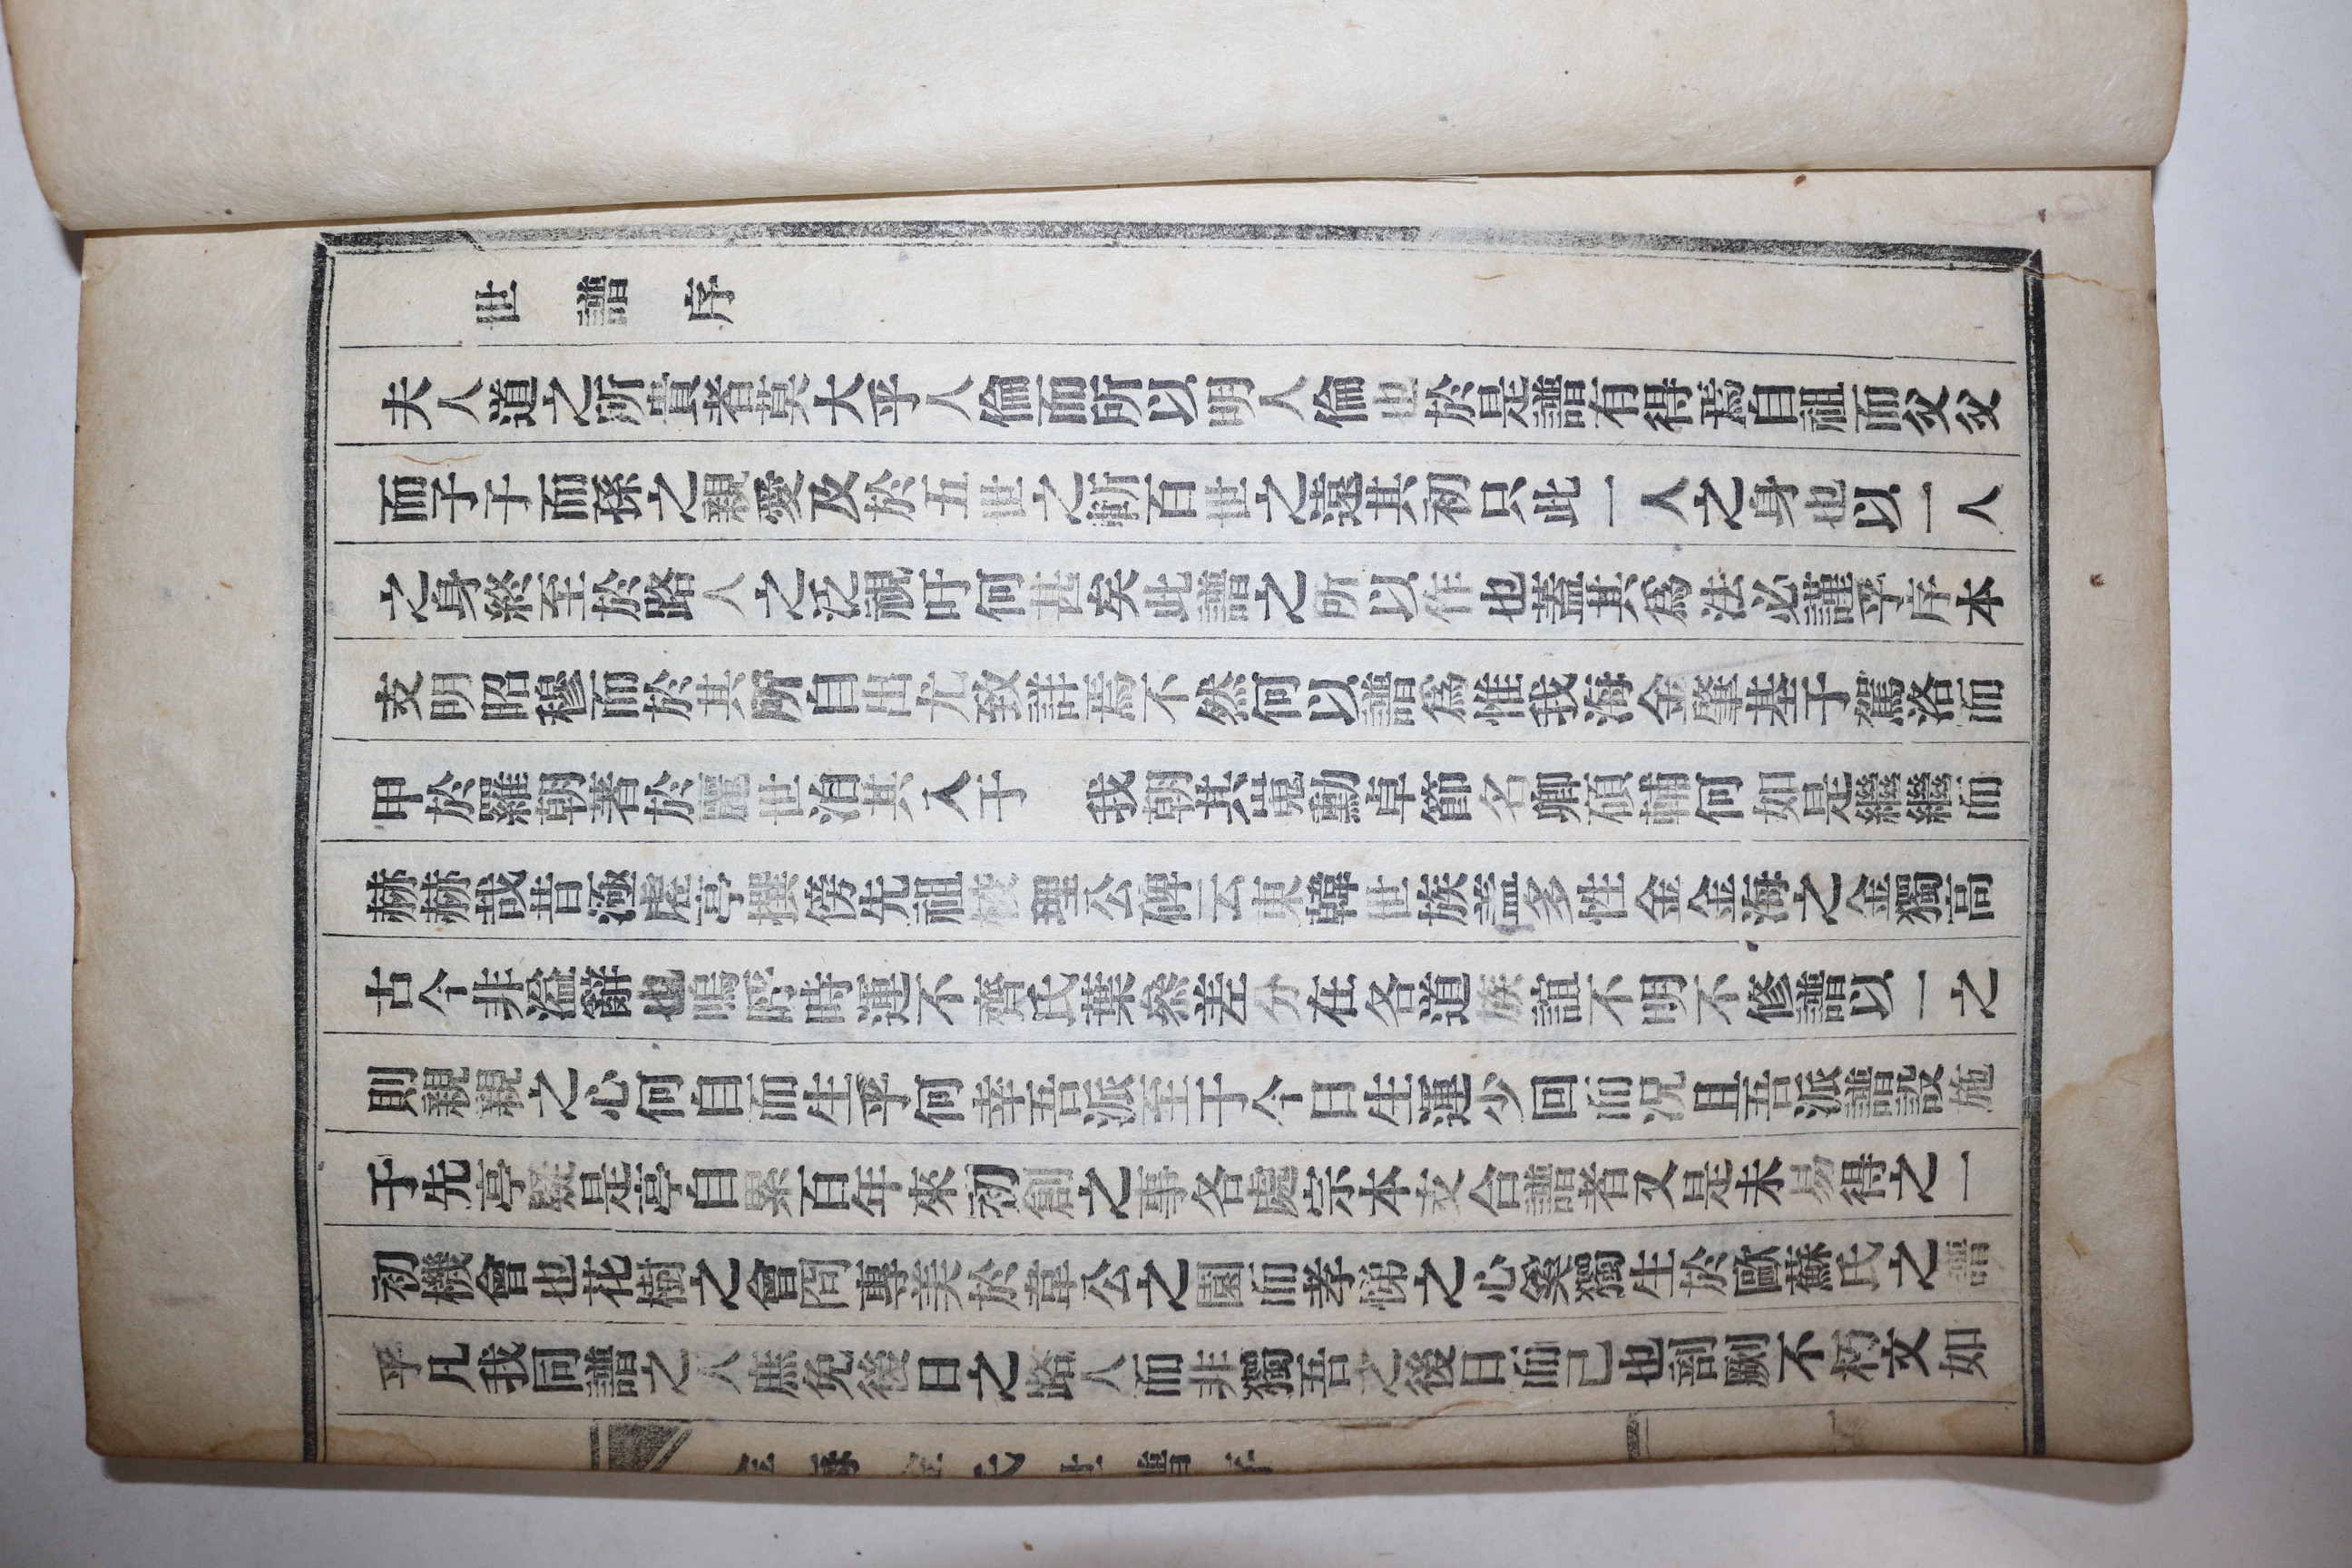 世譜序
夫人道之所貴者莫大乎人倫而所以明人倫也於是譜有得焉自祖而父父
而子子而孫之親愛及於五世之斬百世之遠其初只此一人之身也以一人
之身終至於路人之汎視吁何甚矣此譜之所以作也蓋其爲法必謹乎序本
支明昭穆而於其所自出尤致詳焉不然何以譜爲惟我海金肇基于駕洛而
甲於羅朝著於麗世洎其入于 我朝其嵬勳卓節名卿碩輔何如是繩繩而
赫赫哉昔濯纓亭撰傍先祖校理公碑云東韓世族誌多姓金金海之金獨高
古今非溢辭也嗚呼時運不齊氏葉叅差分在各道族誼不明不修譜以一之
則親親之心何自而生乎何幸吾派至于今日生運少回而況且吾派譜設施
于先亭墜是亭自累百年來初創之事各處宗本支合譜者又是未易得之一
初機會也花樹之會何專美於韋公之園而孝悌之心奚獨生於歐蘇氏之譜
乎凡我同譜之人無免後日之路人而非獨吾之後日而已也剞劂不朽文如
金海金氏世譜序